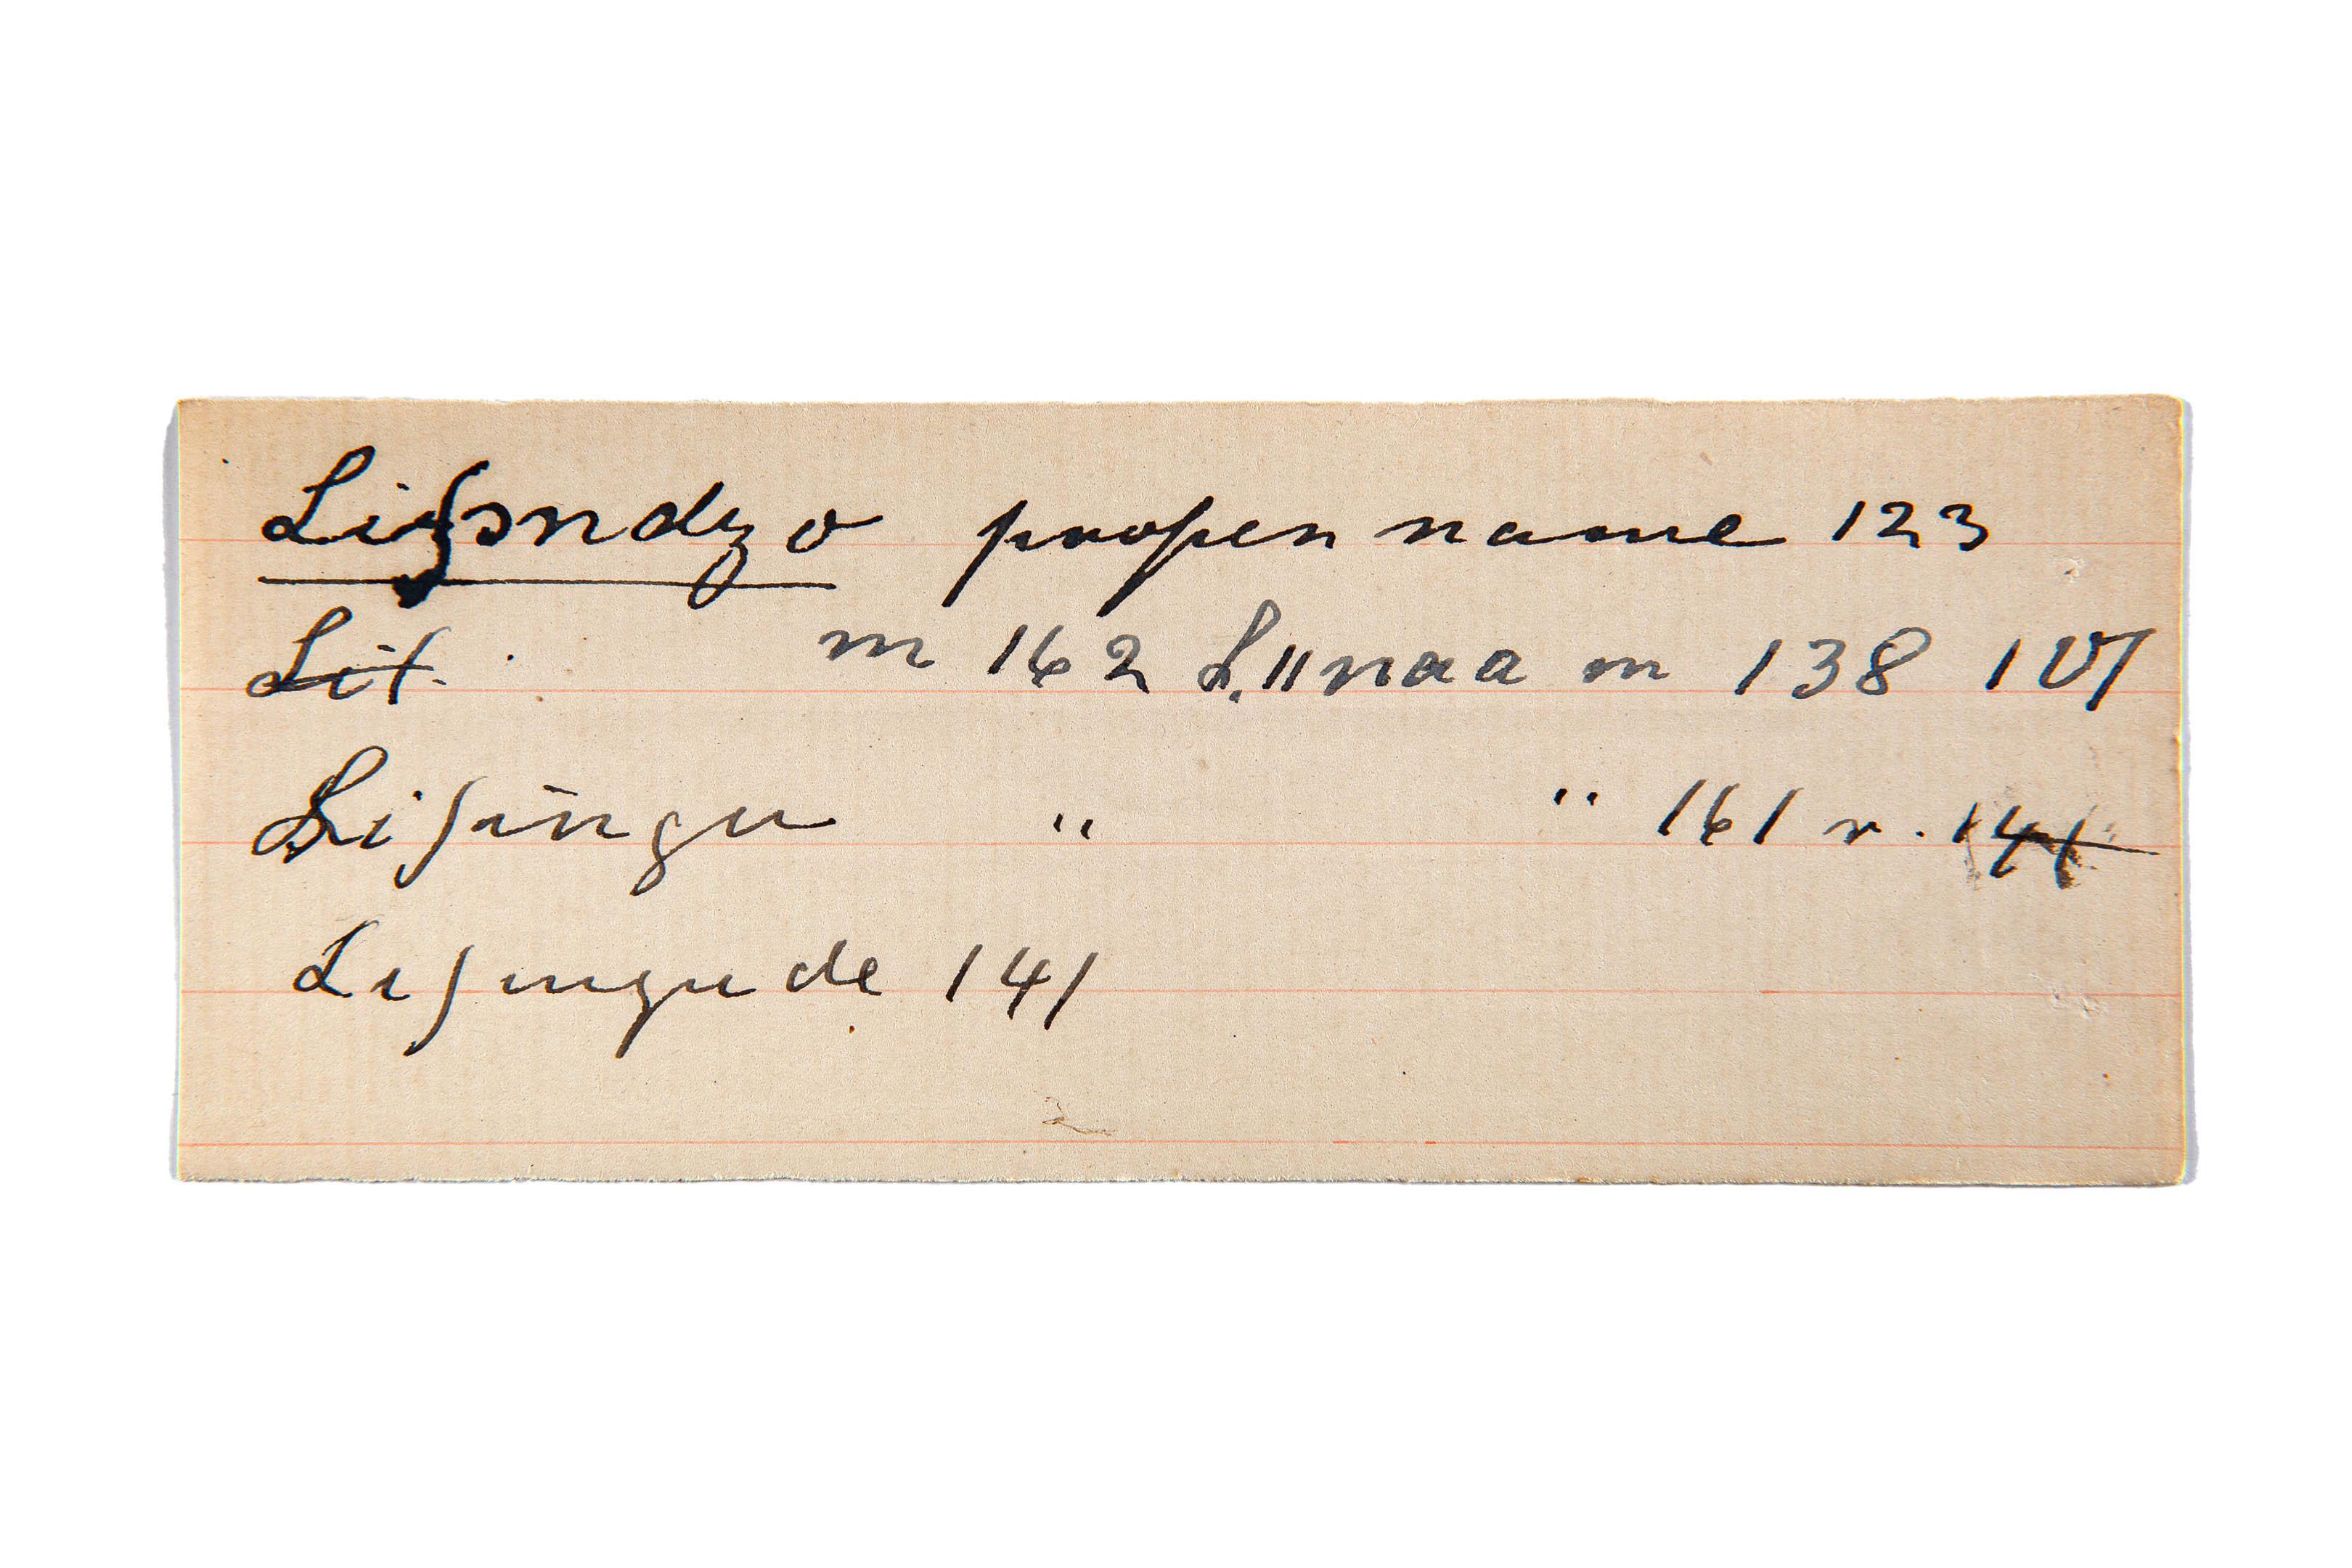 Liʃɔndzo proper name 123
Lit. m 162 L,,naa m 138 107
Liʃingu " " 161 r. 141
Liʃingude 141